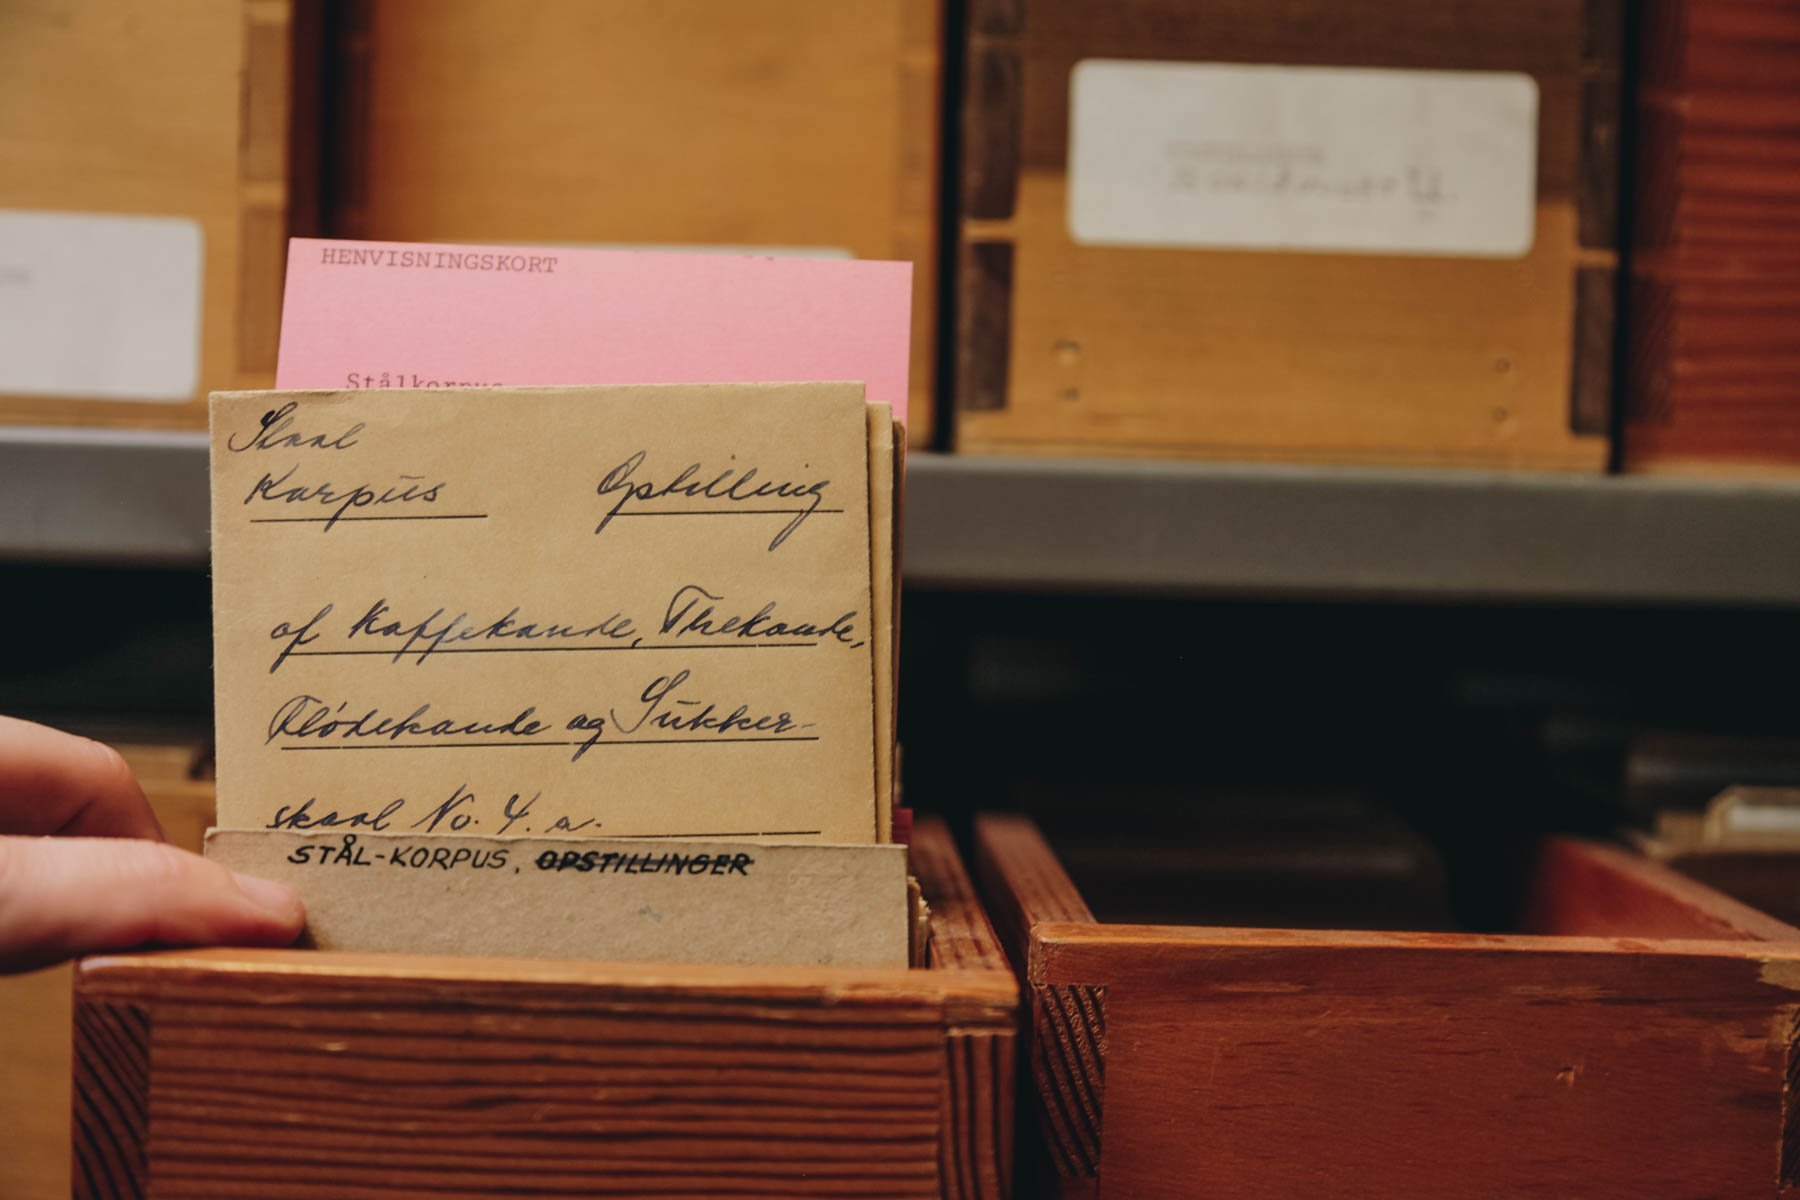 HENVISNINGSKORT
Stålkorpus
Staal
Korpus Opstilling
af Kaffekande, Thekande,
Flödekande og Sukker-
skaal No. 4. a.
STÅL-KORPUS, OPSTILLINGER